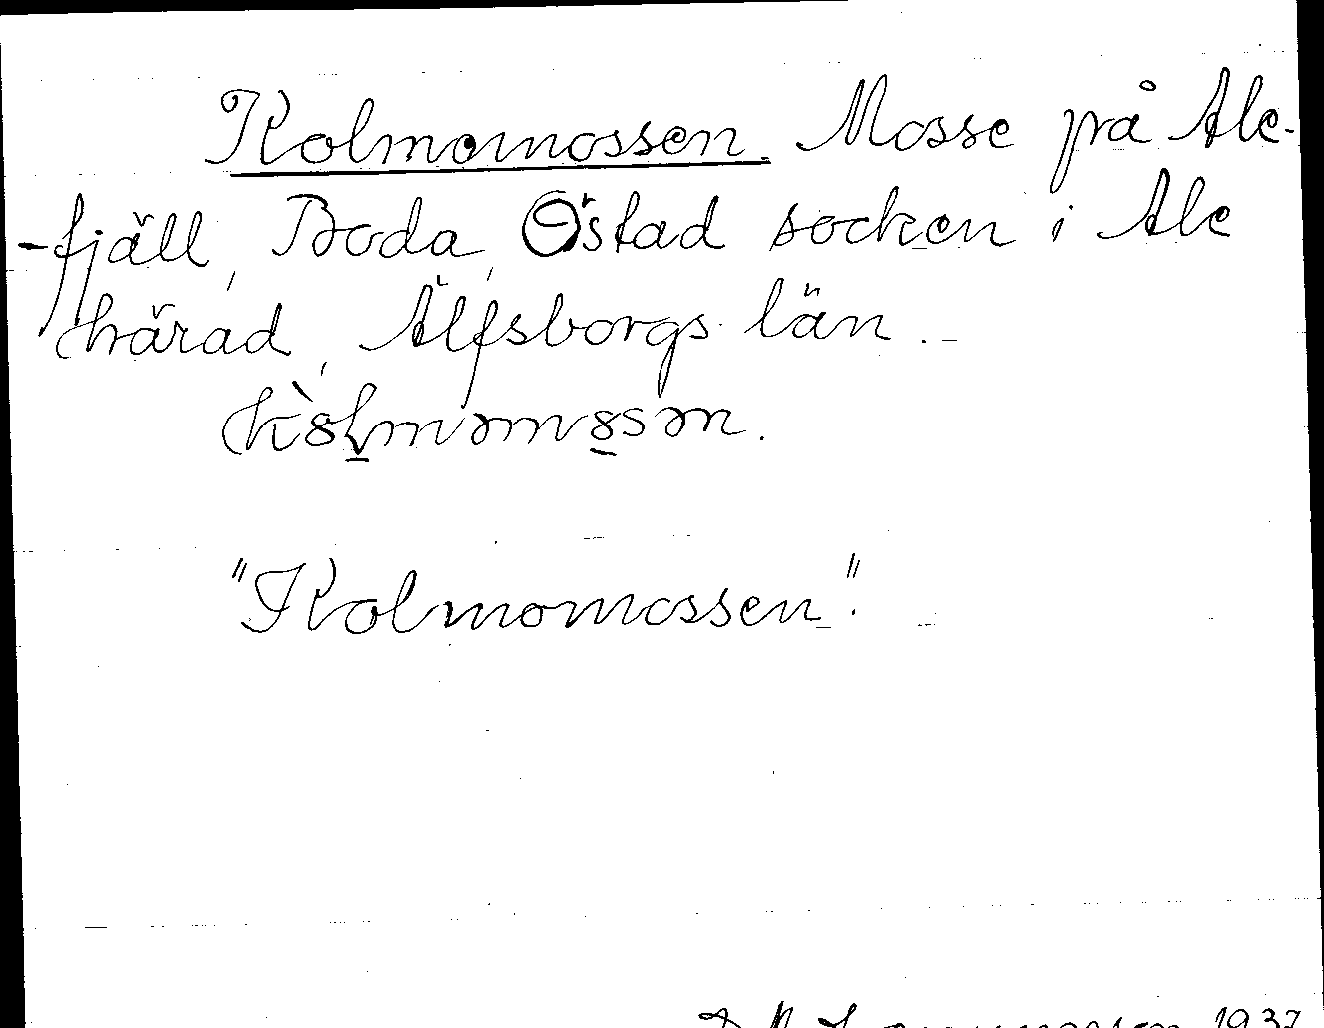 Kolmomossen. Mosse på Ale-
-fjäll, Boda, Östad socken i Ale
härad, Älfsborgs län.-
"Kolmomossen".
1937